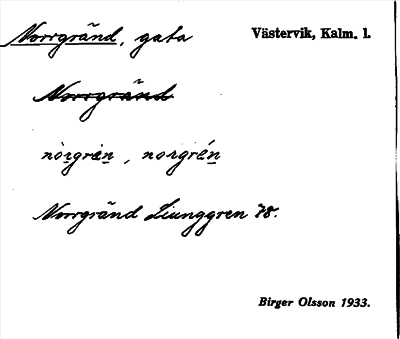 Norrgränd, gata
Västervik, Kalm. l.
Norrgränd
Norrgränd Ljunggren 78.
Birger Olsson 1933.